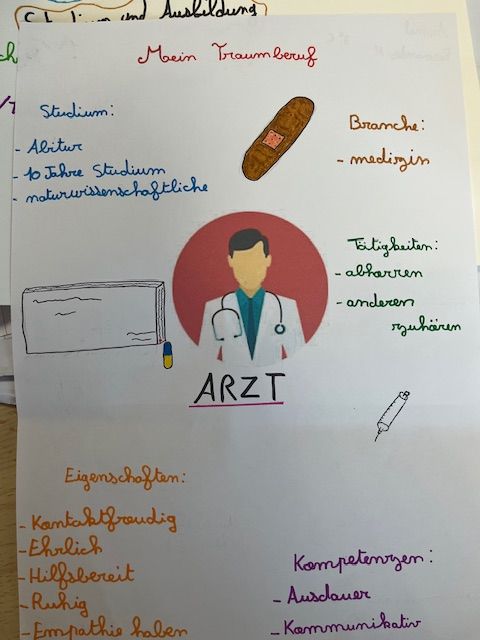 Studium und Ausbildung
Mein Traumberuf
Studium:
- Abitur
- 10 Jahre Studium
- naturwissenschaftliche
Branche:
- medizin
Tätigkeiten:
- abharren
- anderen
zuhären
ARZT
Eigenschaften:
- Kontaktfreudig
- Ehrlich
- Hilfsbereit
- Ruhig
- Empathie haben
Kompetenzen:
- Ausdauer
- Kommunikativ